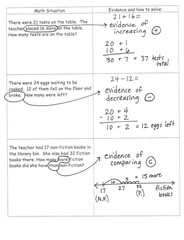 Math Situation
Evidence and how to solve:
There were 21 tests on the table. The
teacher placed 16 more on the table.
How many tests are on the table?
21 + 16 =
evidence of
increasing +
20 + 1
10 + 6
30 + 7 = 37 tests
total
There were 24 eggs waiting to be
cooked. 12 of them fell on the floor and
broke. How many were left?
24 - 12 =
evidence of
decreasing -
20 + 4
- 10 + 2
10 + 2 = 12 eggs left
The teacher had 17 non-fiction books in
the library bin. She also had 32 fiction
books there. How many more fiction
books did she have than non-fiction?
evidence of
comparing C
= 15 more
fiction
books
17
27
32
(N.F.)
(F.)